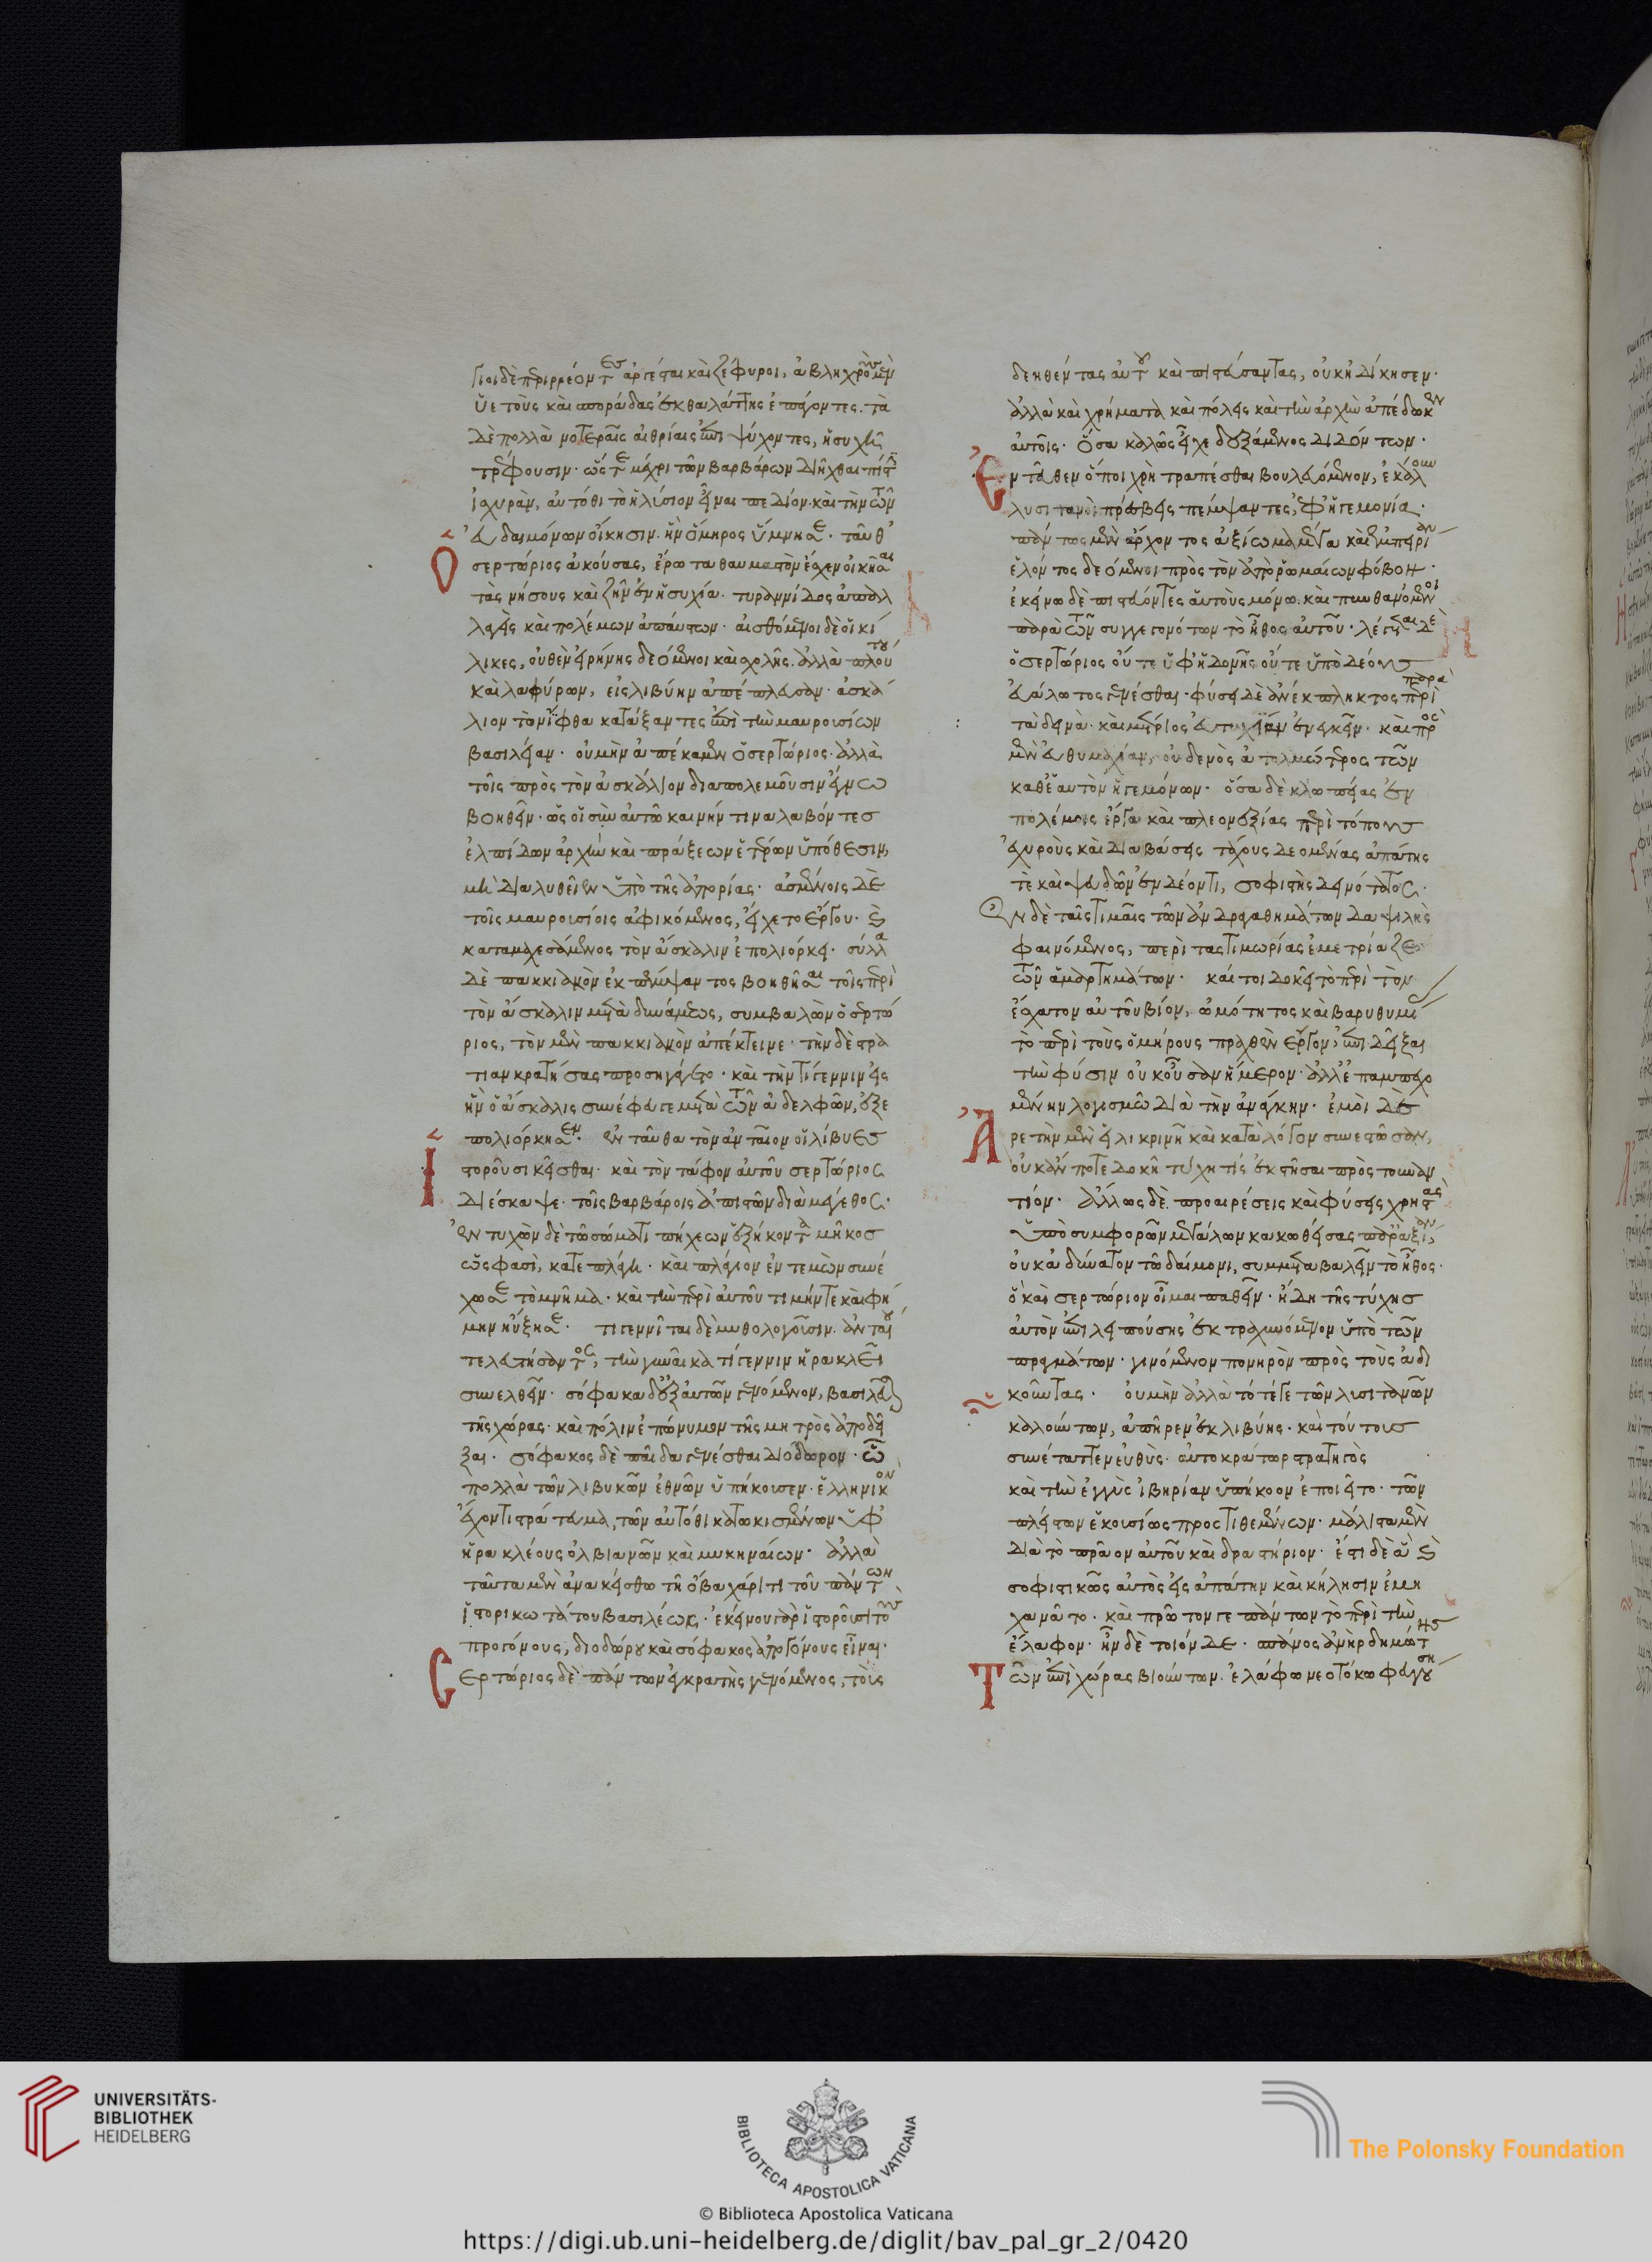 γιοι δὲ περιρρέοντες ἀργέσται καὶ ζέφυροι, ἀβληχροὺς μὲν
ὑετοὺς καὶ σποράδας ἐκ θαλάττης ἐπάγοντες. τὰ
δὲ πολλὰ νοτεραῖς αἰθρίαις ἐπιψύχοντες, ἡσυχῆ
τρέφουσιν· ὥστε μέχρι τῶν βαρβάρων διῆχθαι πίστιν
ἰσχυρὰν, αὐτόθι τὸ ἠλύσιον εἶναι πεδίον· καὶ τὴν τῶν
εὐδαιμόνων οἴκησιν. ἣν ὅμηρος ὕμνησε· ταῦθ᾽
Ὁ σερτώριος ἀκούσας, ἔρωτα θαυμαστὸν ἔσχεν οἰκῆσαι
τὰς νήσους καὶ ζῆν ἐν ἡσυχία· τυραννίδος ἀπαλ
λαγεὶς καὶ πολέμων ἀπαύστων· αἰσθόμενοι δὲ οἱ κί
λικες, οὐθὲν εἰρήνης δεόμενοι καὶ σχολῆς. ἀλλὰ πλούτου
καὶ λαφύρων, εἰς λιβύην ἀπέπλευσαν· ἀσκά
λιον τὸν ἴφθα κατάξαντες ἐπὶ τὴν μαυρουσίων
βασιλείαν· οὐ μὴν ἀπέκαμεν ὁ σερτώριος· ἀλλὰ
τοῖς πρὸς τὸν ἀσκάλιον διαπολεμοῦσιν ἔγνω
βοηθεῖν· ὡς οἱ σὺν αὐτῶ καινήν τινα λαβόντες
ἐλπίδων ἀρχὴν καὶ πράξεων ἑτέρων ὑπόθεσιν,
μὴ διαλυθεῖεν ὑπὸ τῆς ἀπορίας· ἀσμένοις δὲ
τοῖς μαυρουσίοις ἀφικόμενος, εἴχετο ἔργου· καὶ
καταμαχεσάμενος τὸν ἄσκαλιν ἐπολιόρκει· σύλλα
δὲ πακκιανὸν ἐκπέμψαντος βοηθῆσαι τοῖς περὶ
τὸν ἄσκαλιν μετὰ δυνάμεως, συμβαλὼν ὁ σερτώ
ριος, τὸν μὲν πακκιανὸν ἀπέκτεινε· τὴν δὲ στρα
τιὰν κρατήσας προσηγάγετο· καὶ τὴν τίγεννιν εἰς
ἣν ὁ ἄσκαλις συνέφυγε μετὰ τῶν ἀδελφῶν, ἐξε
πολιόρκησεν· ἐνταῦθα τὸν ἀνταῖον οἱ λίβυες
Ἱστοροῦσι κεῖσθαι· καὶ τὸν τάφον αὐτοῦ σερτώριος
διέσκαψε· τοῖς βαρβάροις ἀπιστῶν διὰ μέγεθος·
ἐντυχὼν δὲ τῶ σώματι πήχεων ἑξήκοντα μῆκος
ὥς φασὶ, κατεπλάγη· καὶ σφάγιον ἐντεμὼν συνέ
χωσε τὸ μνῆμα· καὶ τὴν περὶ αὐτοῦ τιμήν τε καὶ φή
μην ηὔξησε· τιγεννῖται δὲ μυθολογοῦσιν. ἀνταίου
τελευτήσαντος, τὴν γυναῖκα τίγεννιν ἡρακλεῖ
συνελθεῖν· σόφακα δ᾽ ἐξ αὐτῶν γενόμενον, βασιλεῦσαι
τῆς χώρας· καὶ πόλιν ἐπώνυμον τῆς μητρὸς ἀποδεῖ
ξαι· σόφακος δὲ παῖδα γενέσθαι διόδωρον· ὧ
πολλὰ τῶν λιβυκῶν ἐθνῶν ὑπήκουσεν· ἑλληνικὸν
ἔχοντι στράτευμα, τῶν αὐτόθι κατωκισμένων ὑφ᾽
ἡρακλέους ὀλβιανῶν καὶ μυκηναίων· ἀλλὰ
ταῦτα μὲν ἀνακείσθω τῆ ἰόβα χάριτι τοῦ πάντων
ἱστορικωτάτου βασιλέως· ἐκείνου γὰρ ἱστοροῦσι τοὺς
προγόνους, διοδώρου καὶ σόφακος ἀπογόνους εἶναι·
Σερτώριος δὲ πάντων ἐγκρατὴς γενόμενος, τοὺς
δεηθέντας αὐτοῦ καὶ πιστεύσαντας, οὐκ ἠδίκησεν·
ἀλλὰ καὶ χρήματα καὶ πόλεις καὶ τὴν ἀρχὴν ἀπέδωκεν
αὐτοῖς· ὅσα καλῶς εἶχε δεξάμενος διδόντων·
Ἐντεῦθεν ὅποι χρὴ τραπέσθαι βουλευόμενον, ἐκάλουν
λυσιτανοὶ πρέσβεις πέμψαντες, ἐφ᾽ ἡγεμονία·
πάντως μὲν ἄρχοντος ἀξίωμα μέγα καὶ ἐμπειρίαν
ἔχοντος δεόμενοι πρὸς τὸν ἀπὸ ῥωμαίων φόβον·
ἐκείνω δὲ πιστεύοντες αὑτοὺς μόνω. καὶ πυνθανόμενοι
παρὰ τῶν συγγεγονότων τὸ ἦθος αὐτοῦ· λέγεται δὲ
ὁ σερτώριος οὔτε ὑφ᾽ ἡδονῆς οὔτε ὑπὸ δέους
εὐάλωτος γενέσθαι· φύσει δὲ ἀνέκπληκτος παρὰ
τὰ δεινὰ· καὶ μέτριος εὐτυχίαν ἐνεγκεῖν· καὶ πρὸς
μὲν εὐθυμαχίαν, οὐδενὸς ἀτολμότερος τῶν
καθ᾽ ἑαυτὸν ἡγεμόνων· ὅσα δὲ κλωπείας ἐν
πολέμοις ἔργα καὶ πλεονεξίας περὶ τόπους
ἐχυροὺς καὶ διαβάσεις τάχους δεομένας ἀπάτης
τὲ καὶ ψευδῶν ἐν δέοντι, σοφιστὴς δεινότατος·
Ἐν δὲ ταῖς τιμαῖς τῶν ἀνδραγαθημάτων δαψιλὴς
φαινόμενος, περὶ τὰς τιμωρίας ἐμετρίαζε
τῶν ἁμαρτημάτων· καίτοι δοκεῖ τὸ περὶ τὸν
ἔσχατον αὐτοῦ βίον, ὠμότητος καὶ βαρυθυμίας
τὸ περὶ τοὺς ὁμήρους πραχθὲν ἔργον, ἐπιδεῖξαι
τὴν φύσιν οὐκ οὖσαν ἥμερον· ἀλλ᾽ ἐπαμπεχο
μένην λογισμῶ διὰ τὴν ἀνάγκην· ἐμοὶ δὲ
Ἀρετὴν μὲν εἰλικρινῆ καὶ κατὰ λόγον συνεστῶσαν,
οὐκ ἄν ποτε δοκῆ τύχη τίς ἐκστῆσαι πρὸς τοὐναν
τίον· ἄλλως δὲ προαιρέσεις καὶ φύσεις χρηστὰς
ὑπὸ συμφορῶν μεγάλων κακωθείσας παρ᾽ ἀξίαν,
οὐκ ἀδύνατον τῶ δαίμονι, συμμεταβαλεῖν τὸ ἦθος·
ὃ καὶ σερτώριον οἶμαι παθεῖν· ἤδη τῆς τύχης
αὐτὸν ἐπιλειπούσης ἐκτραχυνόμενον ὑπὸ τῶν
πραγμάτων· γινόμενον πονηρὸν πρὸς τοὺς ἀδι
κοῦντας· οὐ μὴν ἀλλὰ τότε γε τῶν λυσιτανῶν
καλούντων, ἀπῆρεν ἐκ λιβύης· καὶ τούτους
συνέταττεν εὐθὺς· αὐτοκράτωρ στρατηγὸς
καὶ τὴν ἐγγὺς ἰβηρίαν ὑπήκοον ἐποιεῖτο· τῶν
πλείστων ἑκουσίως προστιθεμένων· μάλιστα μὲν
διὰ τὸ πρᾶον αὐτοῦ καὶ δραστήριον· ἔστι δὲ ἃ καὶ
σοφιστικῶς αὐτὸς εἰς ἀπάτην καὶ κήλησιν ἐμη
χανᾶτο· καὶ πρῶτον γε πάντων τὸ περὶ τὴν
ἔλαφον· ἦν δὲ τοιόνδε· σπάνος ἀνὴρ δημότης
Τῶν ἐπὶ χώρας βιούντων· ἐλάφω νεοτόκω φευγούση
UNIVERSITÄTS-
BIBLIOTHEK
HEIDELBERG
BIBLIOTECA APOSTOLICA VATICANA
The Polonsky Foundation
© Biblioteca Apostolica Vaticana
https://digi.ub.uni-heidelberg.de/diglit/bav_pal_gr_2/0420